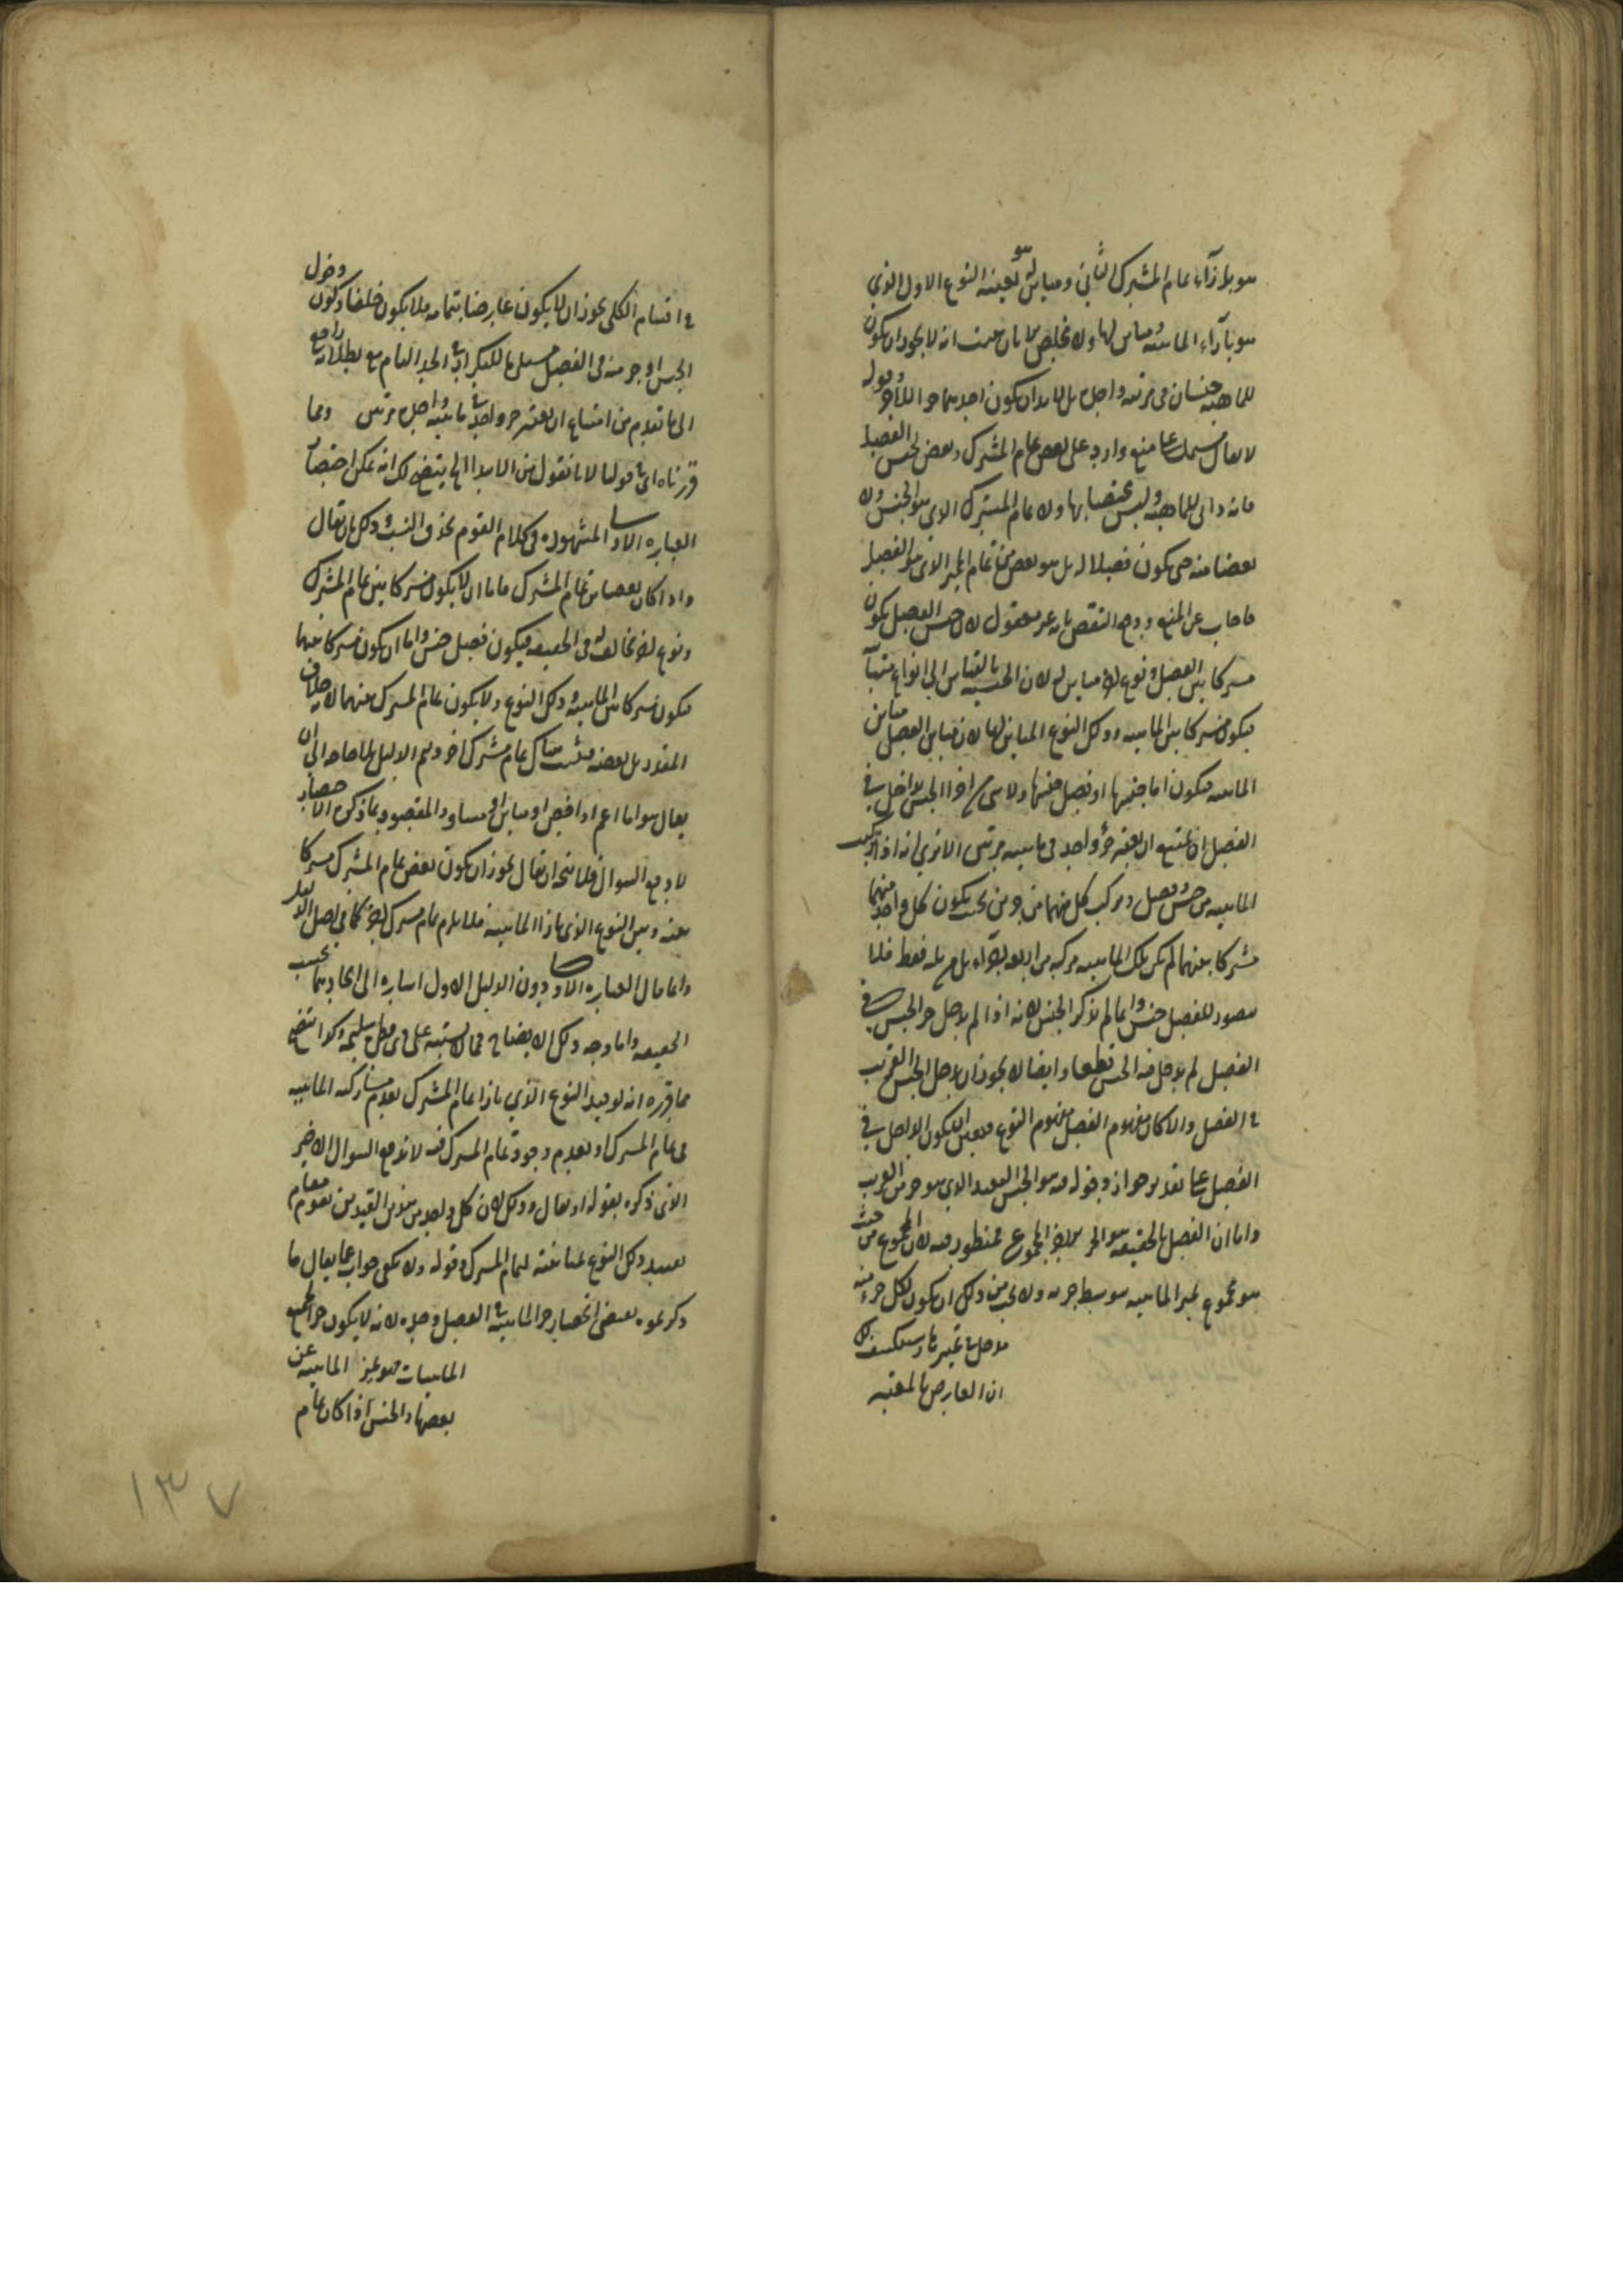 هو بازاء تمام المشترك الثاني ومباين له هو بعينه النوع الاول الذي
هو بازاء الماهية ومباين لها ولا مخلص الا بان يثبت انه لا يجوز ان يكون
للماهية جنسان في مرتبة واحدة بل لا بد ان يكون احدهما جزءا للآخر قوله
لا يقال منع وارد على بعض تمام المشترك وبعض لجنس الفصل
فانه ذاتي للماهية وليس مختصا بها ولا تمام المشترك الذي هو الجنس ولا
بعضا منه حتى يكون فصلا له بل هو بعض من تمام المميز الذي هو الفصل
فاجاب عن المنع ودفع النقض بانه غير معقول لان جنس الفصل يكون
مشتركا بين الفصل ونوع مباين له لان الجنسية بالقياس الى انواع
فيكون مشتركا بين الماهية وذلك النوع المباين لها لان مباين الفصل مباين
الماهية فيكون اما جنسها او فصل جنسها ولا شيء من اجزاء الجنس بداخل في
الفصل اذ يمتنع ان يعتبر جزء واحد في ماهية مرتين الا ترى انه اذا تركبت
الماهية من جنس وفصل وتركب كل منهما من جزئين بحيث يكون كل واحد منهما
مشتركا بينهما لم يكن تلك الماهية مركبة من اربعة اجزاء بل من ثلثة فقط فلا
يتصور للفصل جنس وانما لم يذكر الجنس لانه اذا لم يدخل جزء الجنس في
الفصل لم يدخل فيه الجنس قطعا وايضا لا يجوز ان يدخل الجنس القريب
في الفصل والا لكان مفهوم الفصل مفهوم النوع فتعين ان يكون الداخل في
الفصل على تقدير جواز دخوله فيه هو الجنس البعيد الذي هو جزء من القريب
واما ان الفصل بالحقيقة هو الجزء الآخر لا المجموع فمنظور فيه لان المجموع من حيث
هو مجموع يميز الماهية بتوسط جزئه ولا يجب من ذلك ان يكون لكل جزء منه
مدخل في تميزها وسيكشف لك
ان العارض بالحقيقة
في اقسام الكلي يجوز ان لا يكون عارضا بتمامه فلا يكون خلفا وكون دخول
الجنس او جزء منه في الفصل مستلزما للتكرار في الحد التام مع بطلانه راجع
الى ما تقدم من امتناع ان يعتبر جزء واحد في ماهية واحدة مرتين ومما
قررناه اي في قولنا لا نا نقول من الابتداء الى يتضح لك انه يمكن اختصار
العبارة الاولى المشهورة في كلام القوم بحذف النسب وذلك بان يقال
واذا كان بعضا من تمام المشترك فاما ان لا يكون مشتركا بين تمام المشترك
ونوع آخر مخالف له في الحقيقة فيكون فصل جنس واما ان يكون مشتركا بينهما
فيكون مشتركا بين الماهية وذلك النوع ولا يكون تمام المشترك بينهما لانه خلاف
المقدر بل بعضه فيثبت هناك تمام مشترك آخر ويتم الدليل بلا حاجة الى ان
يقال هو اما اعم او اخص او مباين او مساو والمقصود بما ذكره الاختصار
لا دفع السؤال فلا يتجه ان يقال يجوز ان يكون بعض تمام المشترك مشتركا
بينه وبين النوع الذي بازاء الماهية فلا يلزم تمام مشترك آخر كما في اصل الدليل
وانما قال العبارة الاولى دون الدليل الاول اشارة الى اتحادهما بحسب
الحقيقة واما وجه ذلك الايضاح فمما لا يشتبه على ذي فطرة سليمة وكذا اتضح
مما قرره انه لو قيد النوع الذي بازاء تمام المشترك بعدم مشاركته الماهية
في تمام المشترك او بعدم وجود تمام المشترك فيه لاندفع السؤال الاخير
الذي ذكره بقوله او يقال وذلك لان كل واحد من هذين القيدين يقوم مقام
تقييد ذلك النوع بمباينته لتمام المشترك وقوله ولا يكفي جواب عما يقال ما
ذكرتموه يقتضي انحصار جزء الماهية في الفصل وحده لانه لا يكون جزء لجميع
الماهيات فهو يميز الماهية عن
بعضها والجنس اذا كان تمام
١٣٧